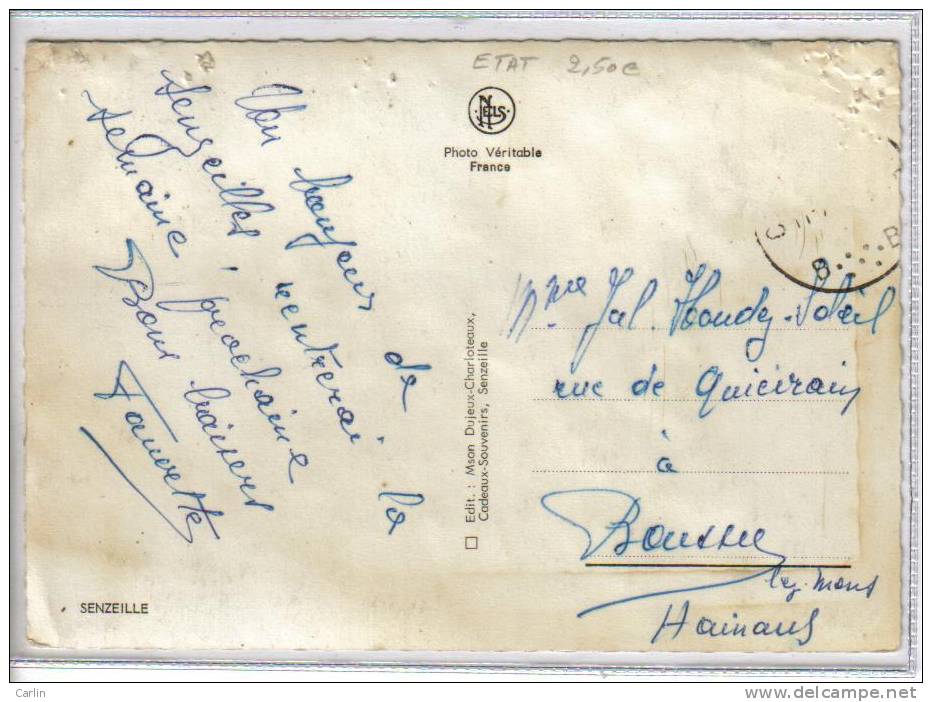 ETAT 2,50€
NELS
Photo Véritable
France
Un bonjour de
Senzeilles, rentrerai la
semaine prochaine
Bons baisers
Fauvette
Edit. : Mson Dujeux-Charloteaux,
Cadeaux-Souvenirs, Senzeille
B
B
Mme Jal. Houdez-Soleil
rue de Quiévrain
à
Boussu
lez-Mons
Hainaut
SENZEILLE
Carlin
www.delcampe.net